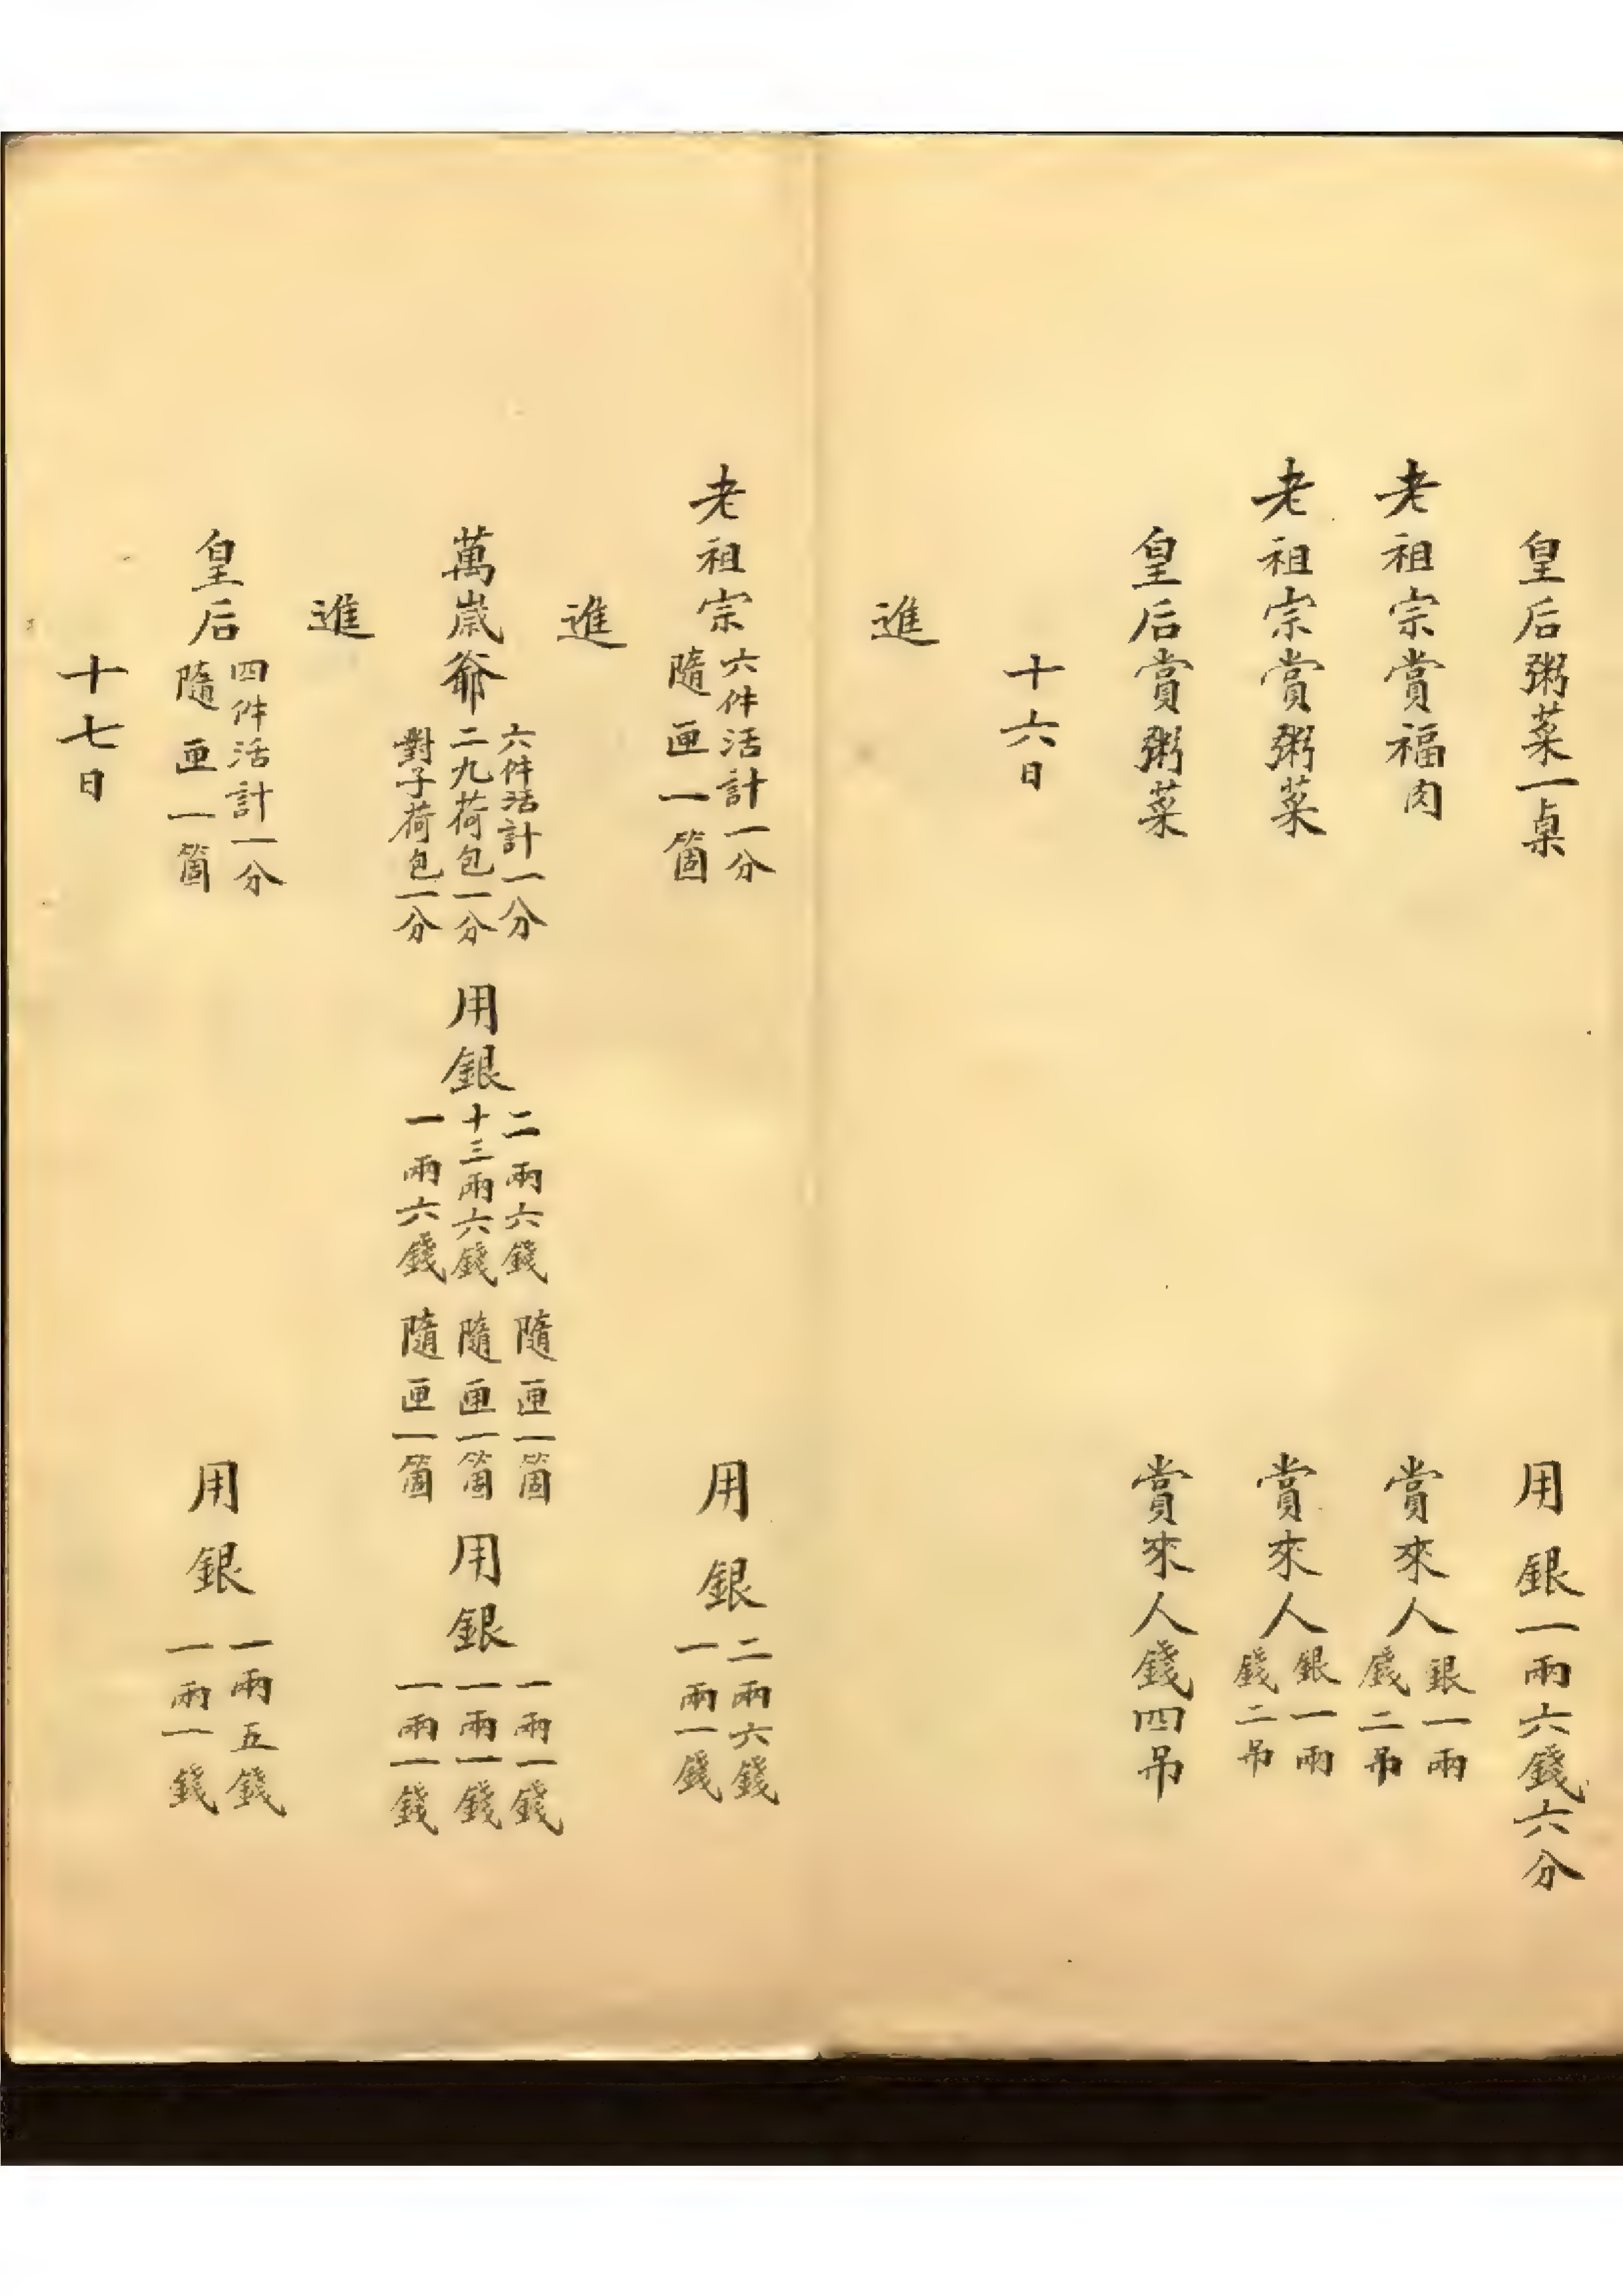 皇后粥菜一桌 用銀一兩六錢六分
老祖宗賞福肉 賞來人銀一兩錢二吊
老祖宗賞粥菜 賞來人銀一兩錢二吊
皇后賞粥菜 賞來人錢四吊
十六日
進
老祖宗六件活計一分隨匣一箇 用銀二兩六錢一兩一錢
進
萬歲爺
六件活計一分 用銀二兩六錢 隨匣一箇 用銀一兩一錢
二九荷包一分 十三兩六錢 隨匣一箇 一兩一錢
對子荷包一分 一兩六錢 隨匣一箇 一兩一錢
進
皇后四件活計一分隨匣一箇 用銀一兩五錢一兩一錢
十七日